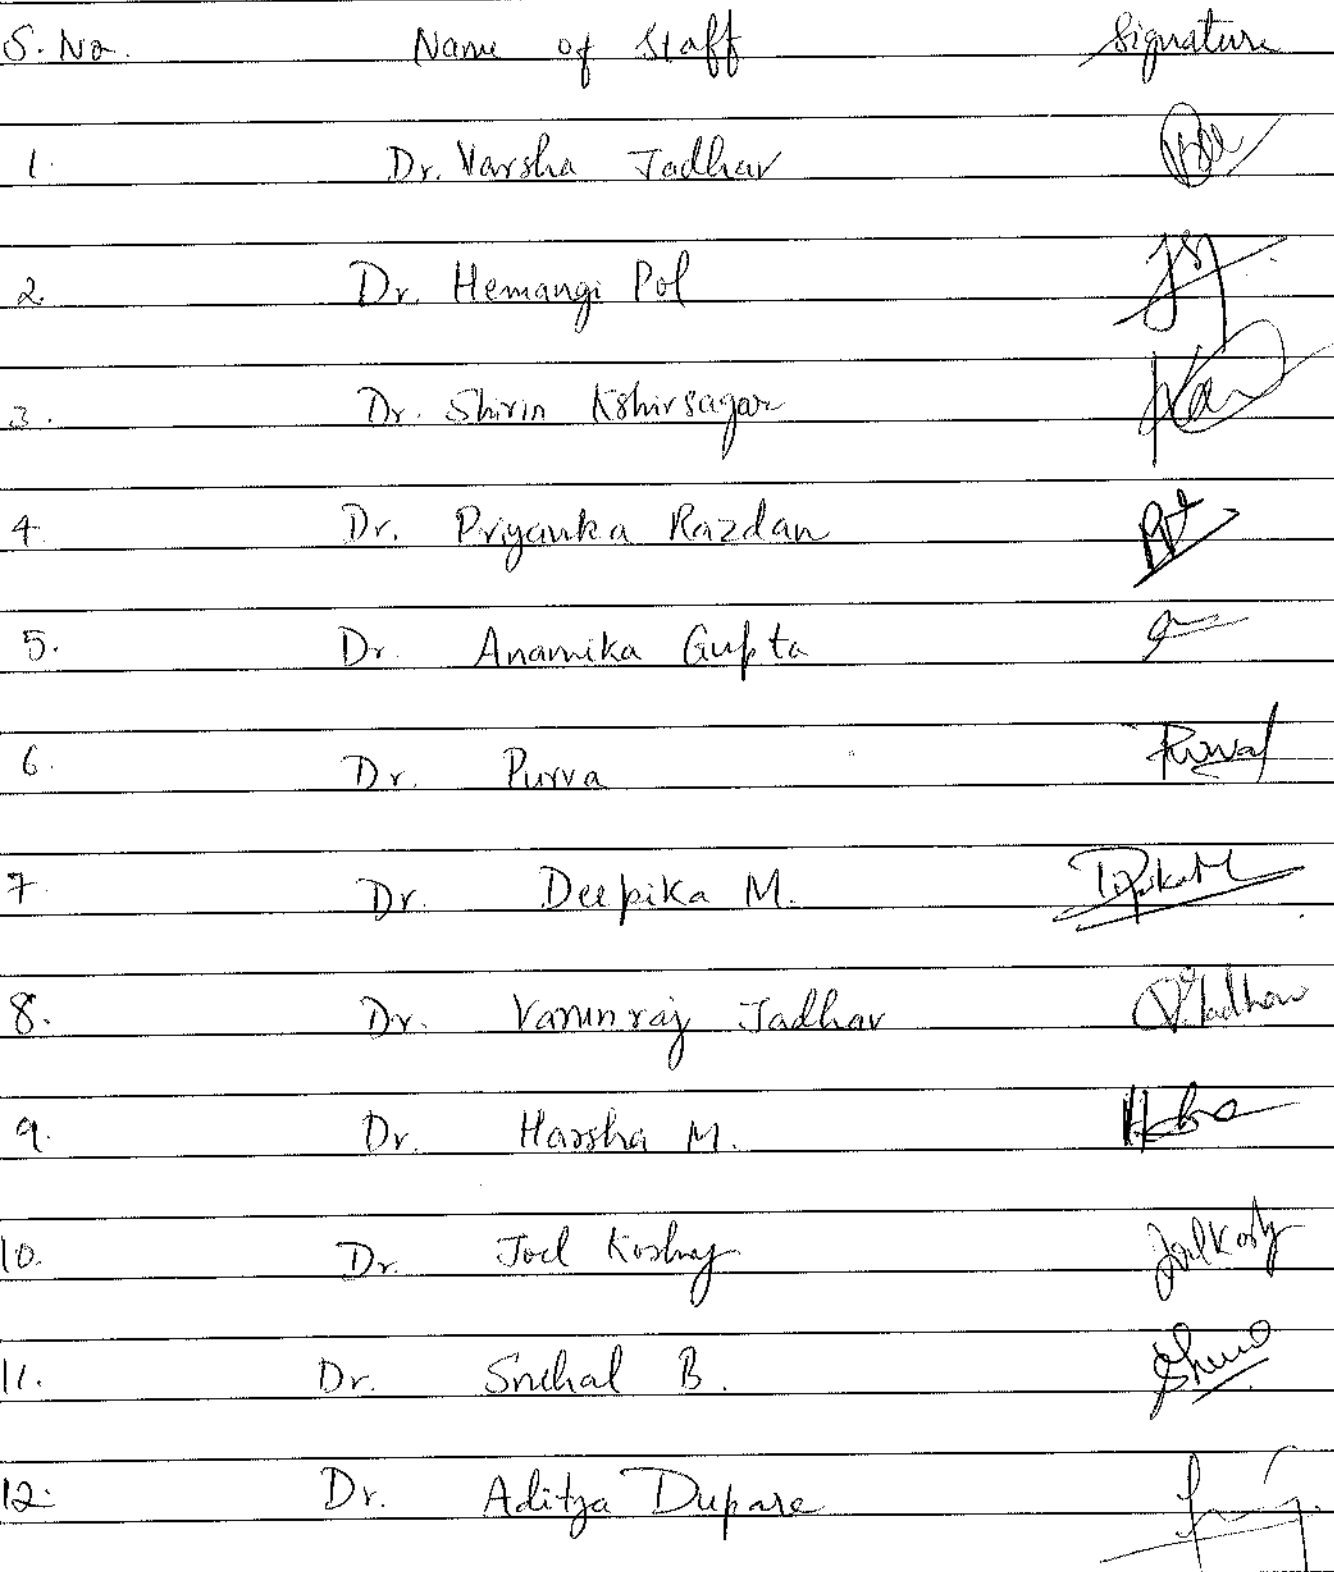 S. No. Name of Staff Signature
1. Dr. Varsha Jadhav
2. Dr. Hemangi Pol
3. Dr. Shirin Kshirsagar
4. Dr. Priyanka Razdan
5. Dr. Anamika Gupta
6. Dr. Purva Purva
7. Dr. Deepika M. DeepikaM
8. Dr. Varunraj Jadhav V.Jadhav
9. Dr. Harsha M.
10. Dr. Joel Koshy Joel Koshy
11. Dr. Snehal B.
12. Dr. Aditya Dupare